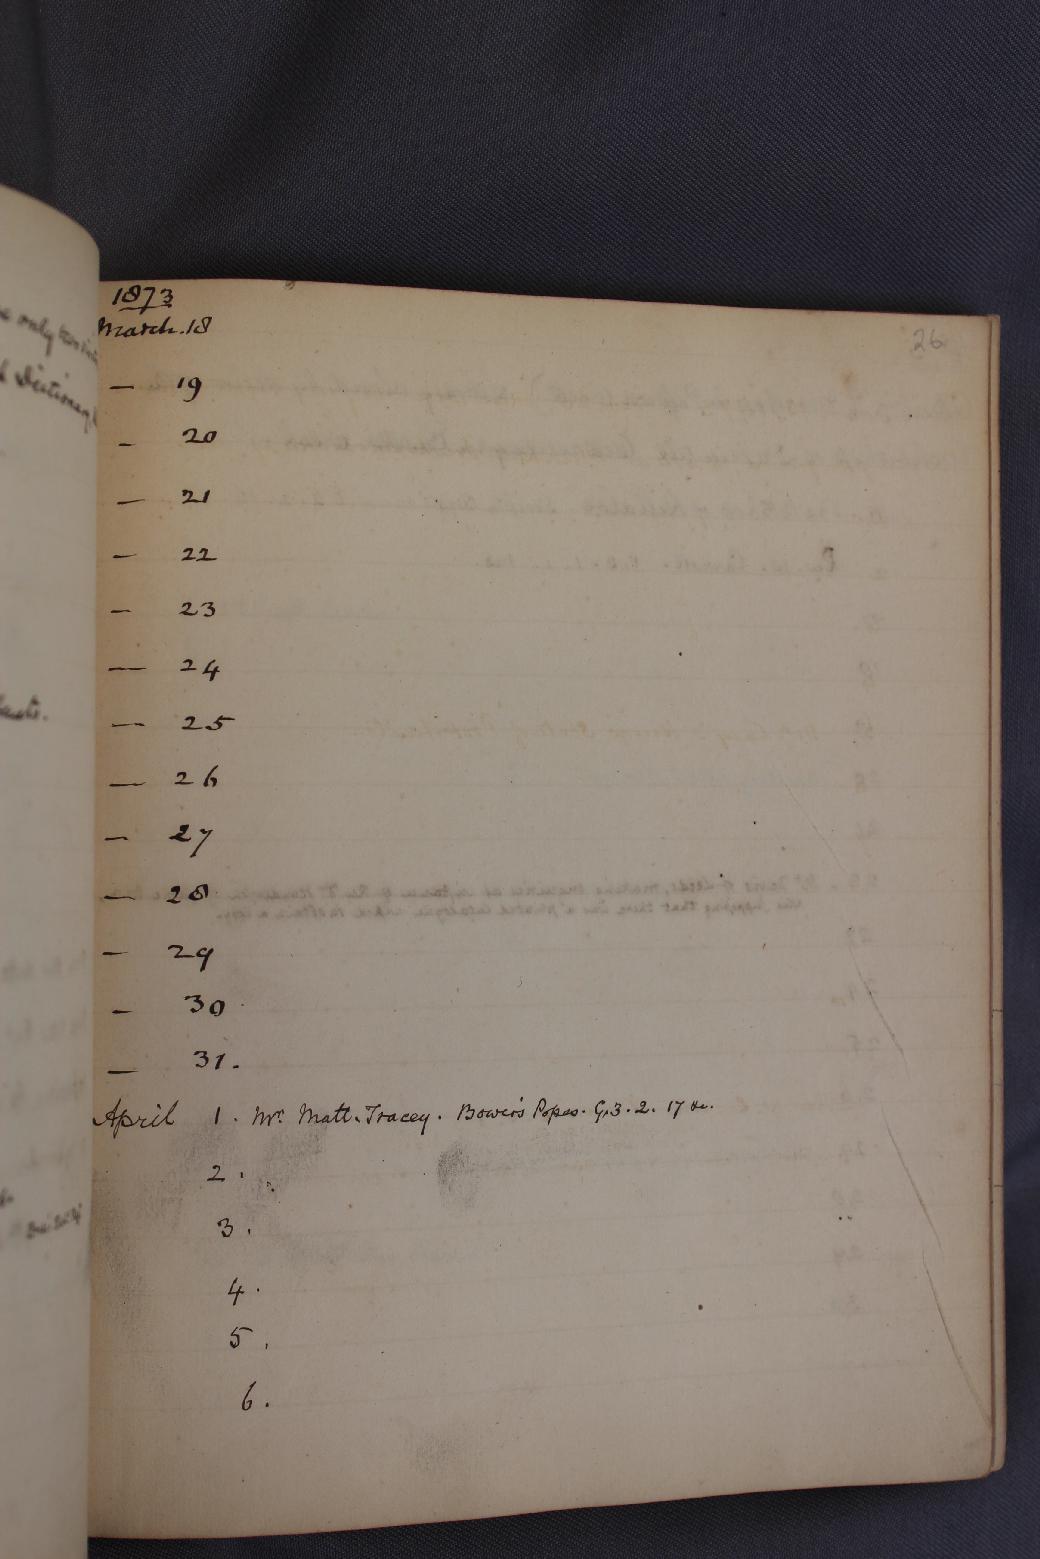 1873
26
March. 18
— 19
— 20
— 21
— 22
— 23
— 24
— 25
— 26
— 27
— 28
— 29
— 30
— 31.
April 1. Mr. Matt. Tracey. Bower's Popes. G. 3. 2. 17 &c.
2.
3.
4.
5.
6.